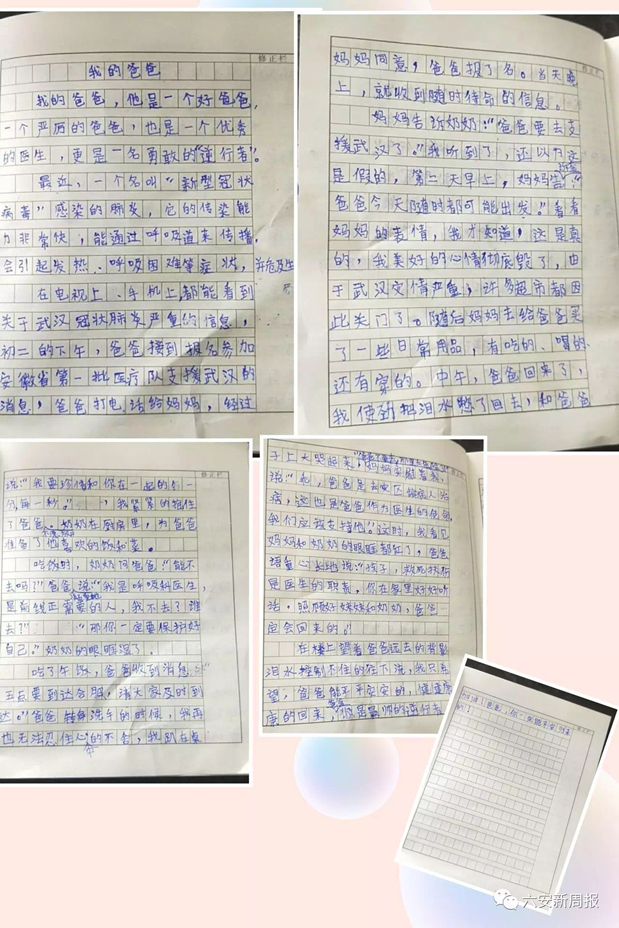 修正栏
我的爸爸
我的爸爸，他是一个好爸爸，
一个严厉的爸爸，也是一个优秀
的医生，更是一名勇敢的“逆行者”。
最近，一个名叫“新型冠状
病毒”感染的肺炎，它的传染能
力非常快，能通过呼吸道来传播，
会引起发热、呼吸困难等症状，并危及生
在电视上、手机上，都能看到
关于武汉冠状肺炎严重的信息，
初二的下午，爸爸接到报名参加
安徽省第一批医疗队支援武汉的
消息，爸爸打电话给妈妈，经过
修正栏
妈妈同意，爸爸报了名。当天晚
上，就收到随时待命的信息。
妈妈告诉奶奶：“爸爸要去支
援武汉了。”我听到了，还以为这
是假的，第二天早上，妈妈告诉我：“
爸爸今天随时都可能出发。”看看
妈妈的表情，我才知道，这是真
的，我美好的心情彻底毁了，由
于武汉灾情严重，许多超市都因
此关门了。随后妈妈去给爸爸买
了一些日常用品，有吃的、喝的、
还有穿的。中午，爸爸回来了，
我使劲把泪水憋了回去，和爸爸
修正栏
说：“我要珍惜和你在一起的每一
分每一秒。”，我紧紧的抱住
了爸爸。奶奶在厨房里，为爸爸
准备了他喜欢的饭和菜。
吃饭时，奶奶问爸爸：“能不
去吗？”爸爸说：“我是呼吸科医生，
是前线正需要的人，我不去？谁
去？”“那你一定要保护好
自己。”奶奶的眼眶湿了。
吃了午饭，爸爸收到消息：“
五点要到达合肥，请大家及时到
达。”爸爸洗车的时候，我再
也无法忍住心中的不舍，我趴在桌
修正栏
子上大哭起来，妈妈安慰着我，
说：“，爸爸是去灾区给病人治
病，这也是爸爸作为医生的使命，
我们应该支持他。”这时，我看见
妈妈和奶奶的眼睛都红了，爸爸
语重心长地说：“孩子，救死扶伤
是医生的职责，你在家里好好听
话，照顾好妹妹和奶奶，爸爸一
定会回来的。”
在楼上望着爸爸远去的背影
泪水控制不住的往下流，我只希
望，爸爸能平平安安的，健健康
康的回来，是最帅的逆行者
修正栏
爸爸，你一定要平安
的！
六安新周报